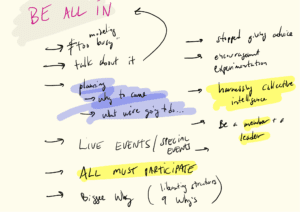 BE ALL IN
modeling
too busy
talk about it
planning
why to come
what we're going to do...
LIVE EVENTS/SPECIAL EVENTS
ALL MUST PARTICIPATE
Bigger Why (liberating structures
9 Why's)
stopped giving advice
encouragement
experimentation
harnessing collective
intelligence
Be a member + a
leader